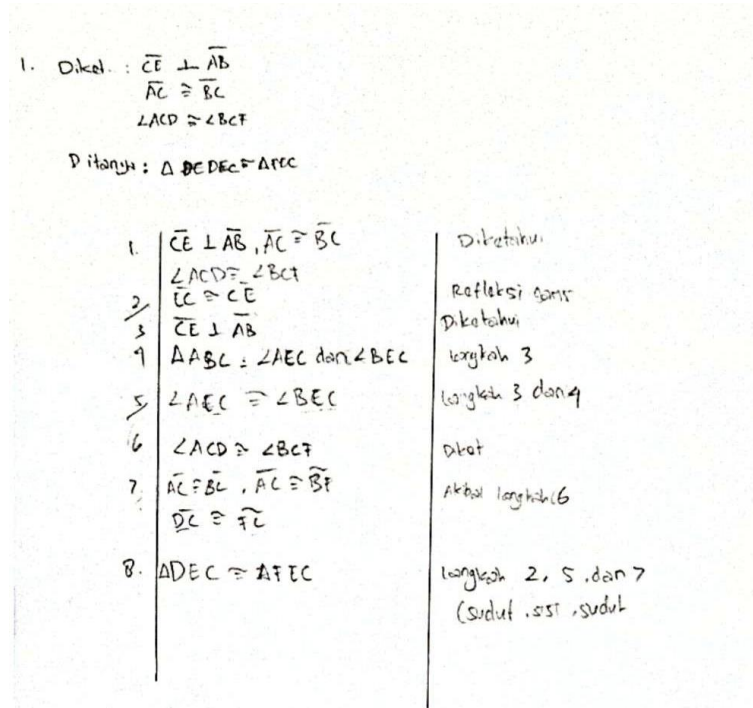 1. Diket. : C̅E̅ ⊥ A̅B̅
A̅C̅ ≅ B̅C̅
∠ACD ≅ ∠BCF
Ditanya : Δ DEC ≅ ΔFEC
1. C̅E̅ ⊥ A̅B̅ , A̅C̅ ≅ B̅C̅ Diketahui
∠ACD ≅ ∠BCF
2 E̅C̅ ≅ C̅E̅ Refleksi garis
3 C̅E̅ ⊥ A̅B̅ Diketahui
4 ΔABC : ∠AEC dan ∠BEC langkah 3
5 ∠AEC ≅ ∠BEC langkah 3 dan 4
6 ∠ACD ≅ ∠BCF Diket
7. A̅C̅ ≅ B̅C̅ , A̅C̅ ≅ B̅F̅ Akibat langkah 6
D̅C̅ ≅ F̅C̅
8. ΔDEC ≅ ΔFEC langkah 2, 5, dan 7
(sudut, sisi, sudut